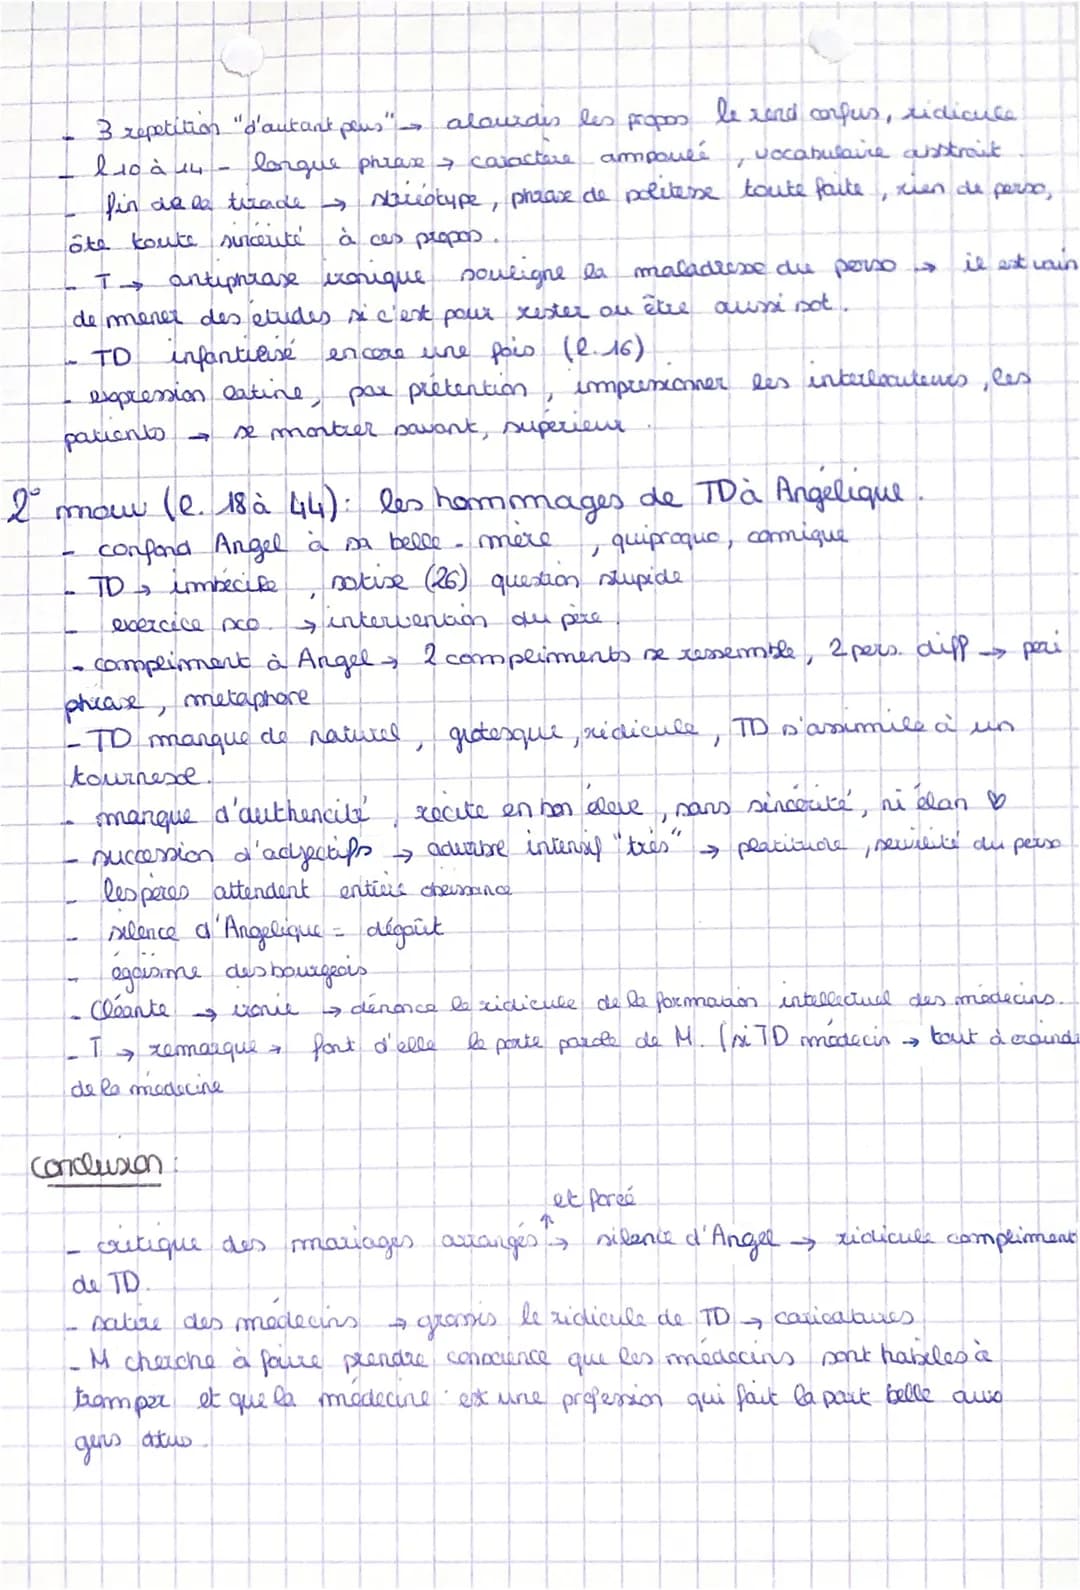 - 3 repetition "d'autant plus" → alourdis les propos le rend confus, ridicule
- l 10 à 14 - longue phrase → caractère ampoulé, vocabulaire abstrait.
- fin de la tirade → stéréotype, phrase de politesse toute faite, rien de perso,
ôte toute sincérité à ces propos.
- T → antiphrase ironique souligne la maladresse du perso → il est vain
de mener des études si c'est pour rester ou être aussi sot.
- TD infantilisé encore une fois (l. 16)
- expression latine, par prétention, impressionner les interlocuteurs, les
patients → se montrer savant, supérieur.
2° mouv (l. 18 à 44): les hommages de TD à Angélique.
- confond Angel à sa belle-mère, quiproquo, comique
- TD → imbécile, sotise (26) question stupide
- exercice sco. → intervention du père.
- compliment à Angel → 2 compliments se ressemble, 2 pers. diff → péri
phrase, metaphore
- TD manque de naturel, grotesque, ridicule, TD s'assimile à un
tournesol.
- manque d'authencité, récite en bon élève, sans sincérité, ni élan ♡
- succession d'adjectifs → adverbe intensif "très" → platitude, servilité du perso
- les pères attendent entière obeissance
- silence d'Angelique = dégoût
- égoïsme des bourgeois
- Cléante → ironie → dénonce le ridicule de la formation intellectuel des médecins.
- T → remarque → font d'elle le porte parole de M. (si TD médecin → tout à craindre
de la médecine
Conclusion :
et forcé
- critique des mariages arrangés → silence d'Angel → ridicule compliment
de TD.
- satire des médecins → grossis le ridicule de TD → caricatures
- M cherche à faire prendre conscience que les médecins sont habiles à
tromper et que la médecine est une profession qui fait la part belle aux
gens